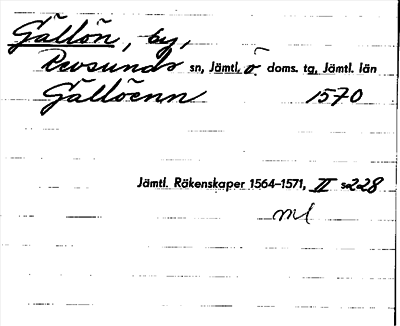 Gällön, by,
Revsunds sn, Jämtl. ö. doms. tg, Jämtl. län
Gällöenn 1570
Jämtl. Räkenskaper 1564–1571, II s. 228
ml